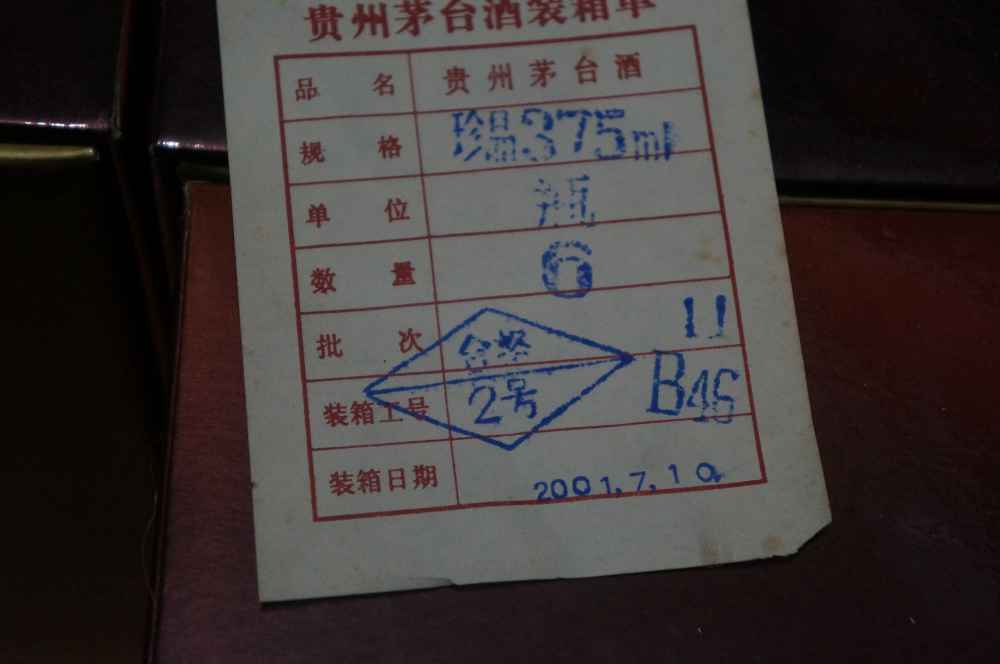 贵州茅台酒装箱单
品名 贵州茅台酒
规格 珍品375ml
单位 瓶
数量 6
批次 11
合格
装箱工号 2号 B46
装箱日期 2001.7.10